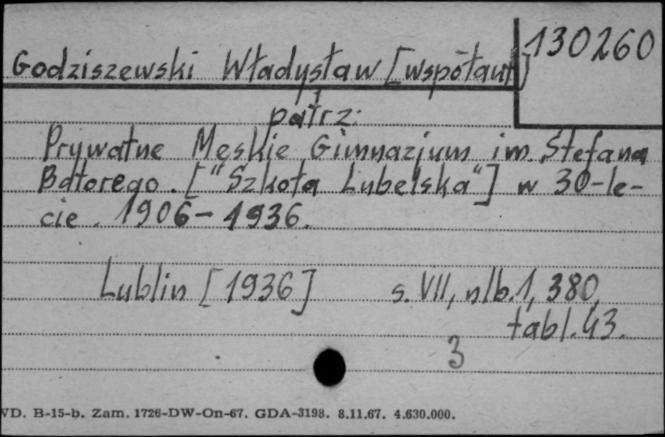 130260
Godziszewski Władysław [współaut.]
patrz:
Prywatne Męskie Gimnazjum im. Stefana
Batorego. ["Szkoła Lubelska"] w 30-le-
cie. 1906-1936.
Lublin [1936] s. VII, nlb.1, 380,
tabl. 43.
3
VD. B-15-b. Zam. 1726-DW-On-67. GDA-3198. 8.11.67. 4.630.000.